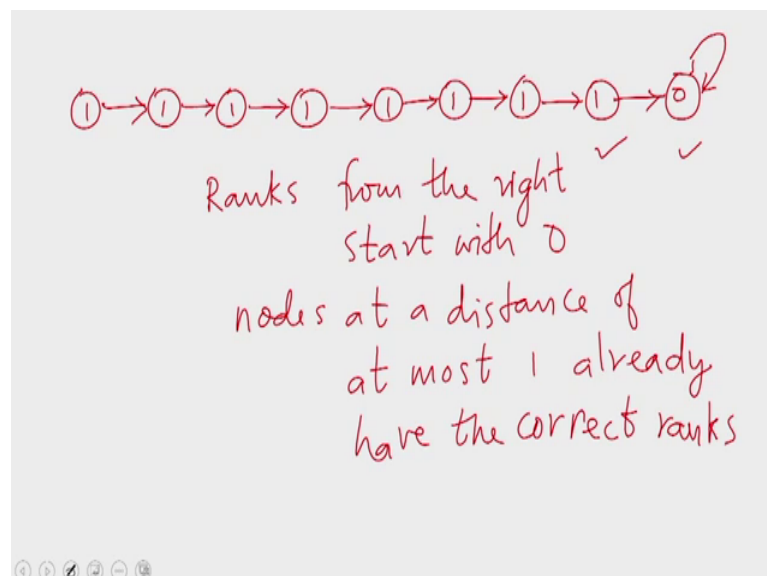 1 1 1 1 1 1 1 1 0
Ranks from the right
start with 0
nodes at a distance of
at most 1 already
have the correct ranks